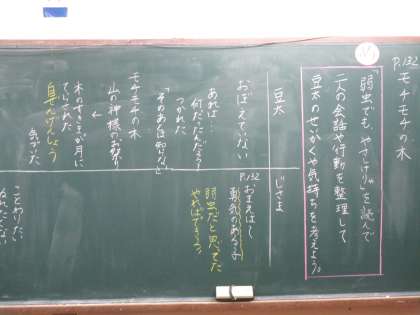 P.132 モチモチの木
「弱虫でも、やさしけりゃ」を読んで
二人の会話や行動を整理して
豆太のせいかくや気持ちを考えよう。
豆太
おぼえていない
あれは…
何だったんだろう
つかれた
「そのあとは知らない」
モチモチの木
山の神様のお祭り
木のすきまが月に
てらされた
自ぜんげんしょう
じさま
P.132
おまえは〜
勇気のある子
弱虫だと思ってた
やればできる。
ことわりたい